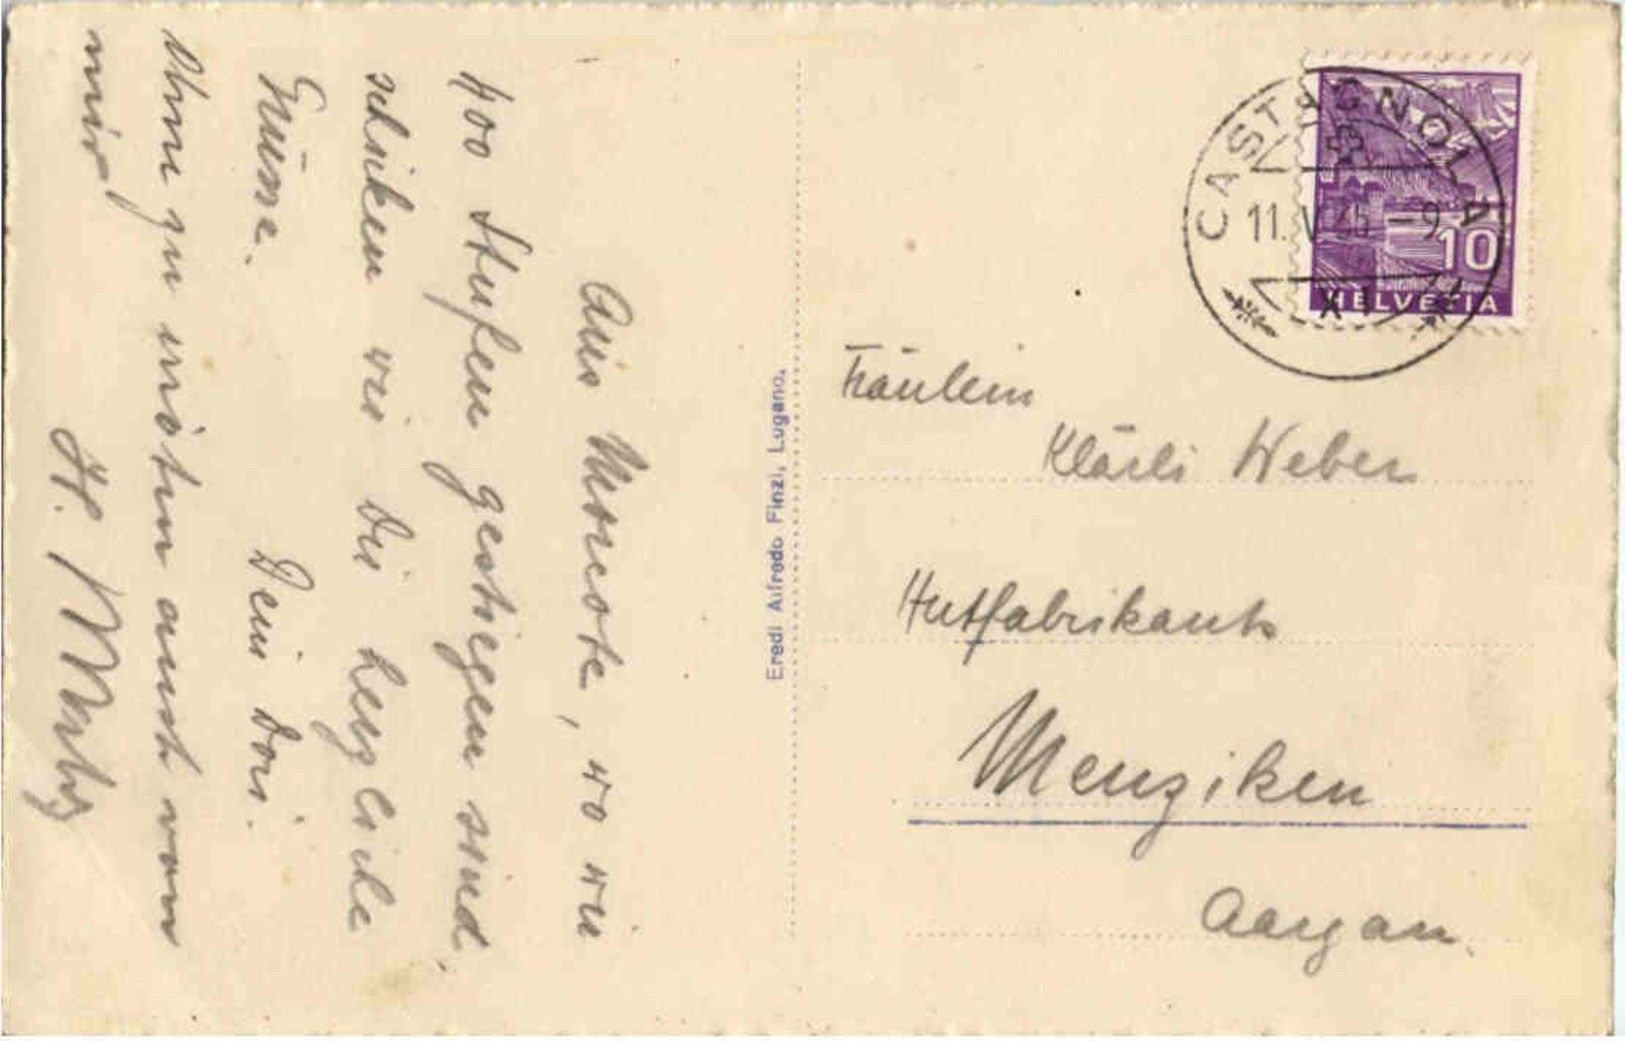 Aus Morcote, wo wir
400 Stufen gestiegen sind,
schicken wir Dir herzliche
Grüsse. Dein Dori.
von
mir
H.
Eredi Alfredo Finzi, Lugano.
CASTAGNOLA
11. V 35 -9
HELVETIA
10
Fräulein
Klärli Weber
Hutfabrikants
Menziken
Aargau.